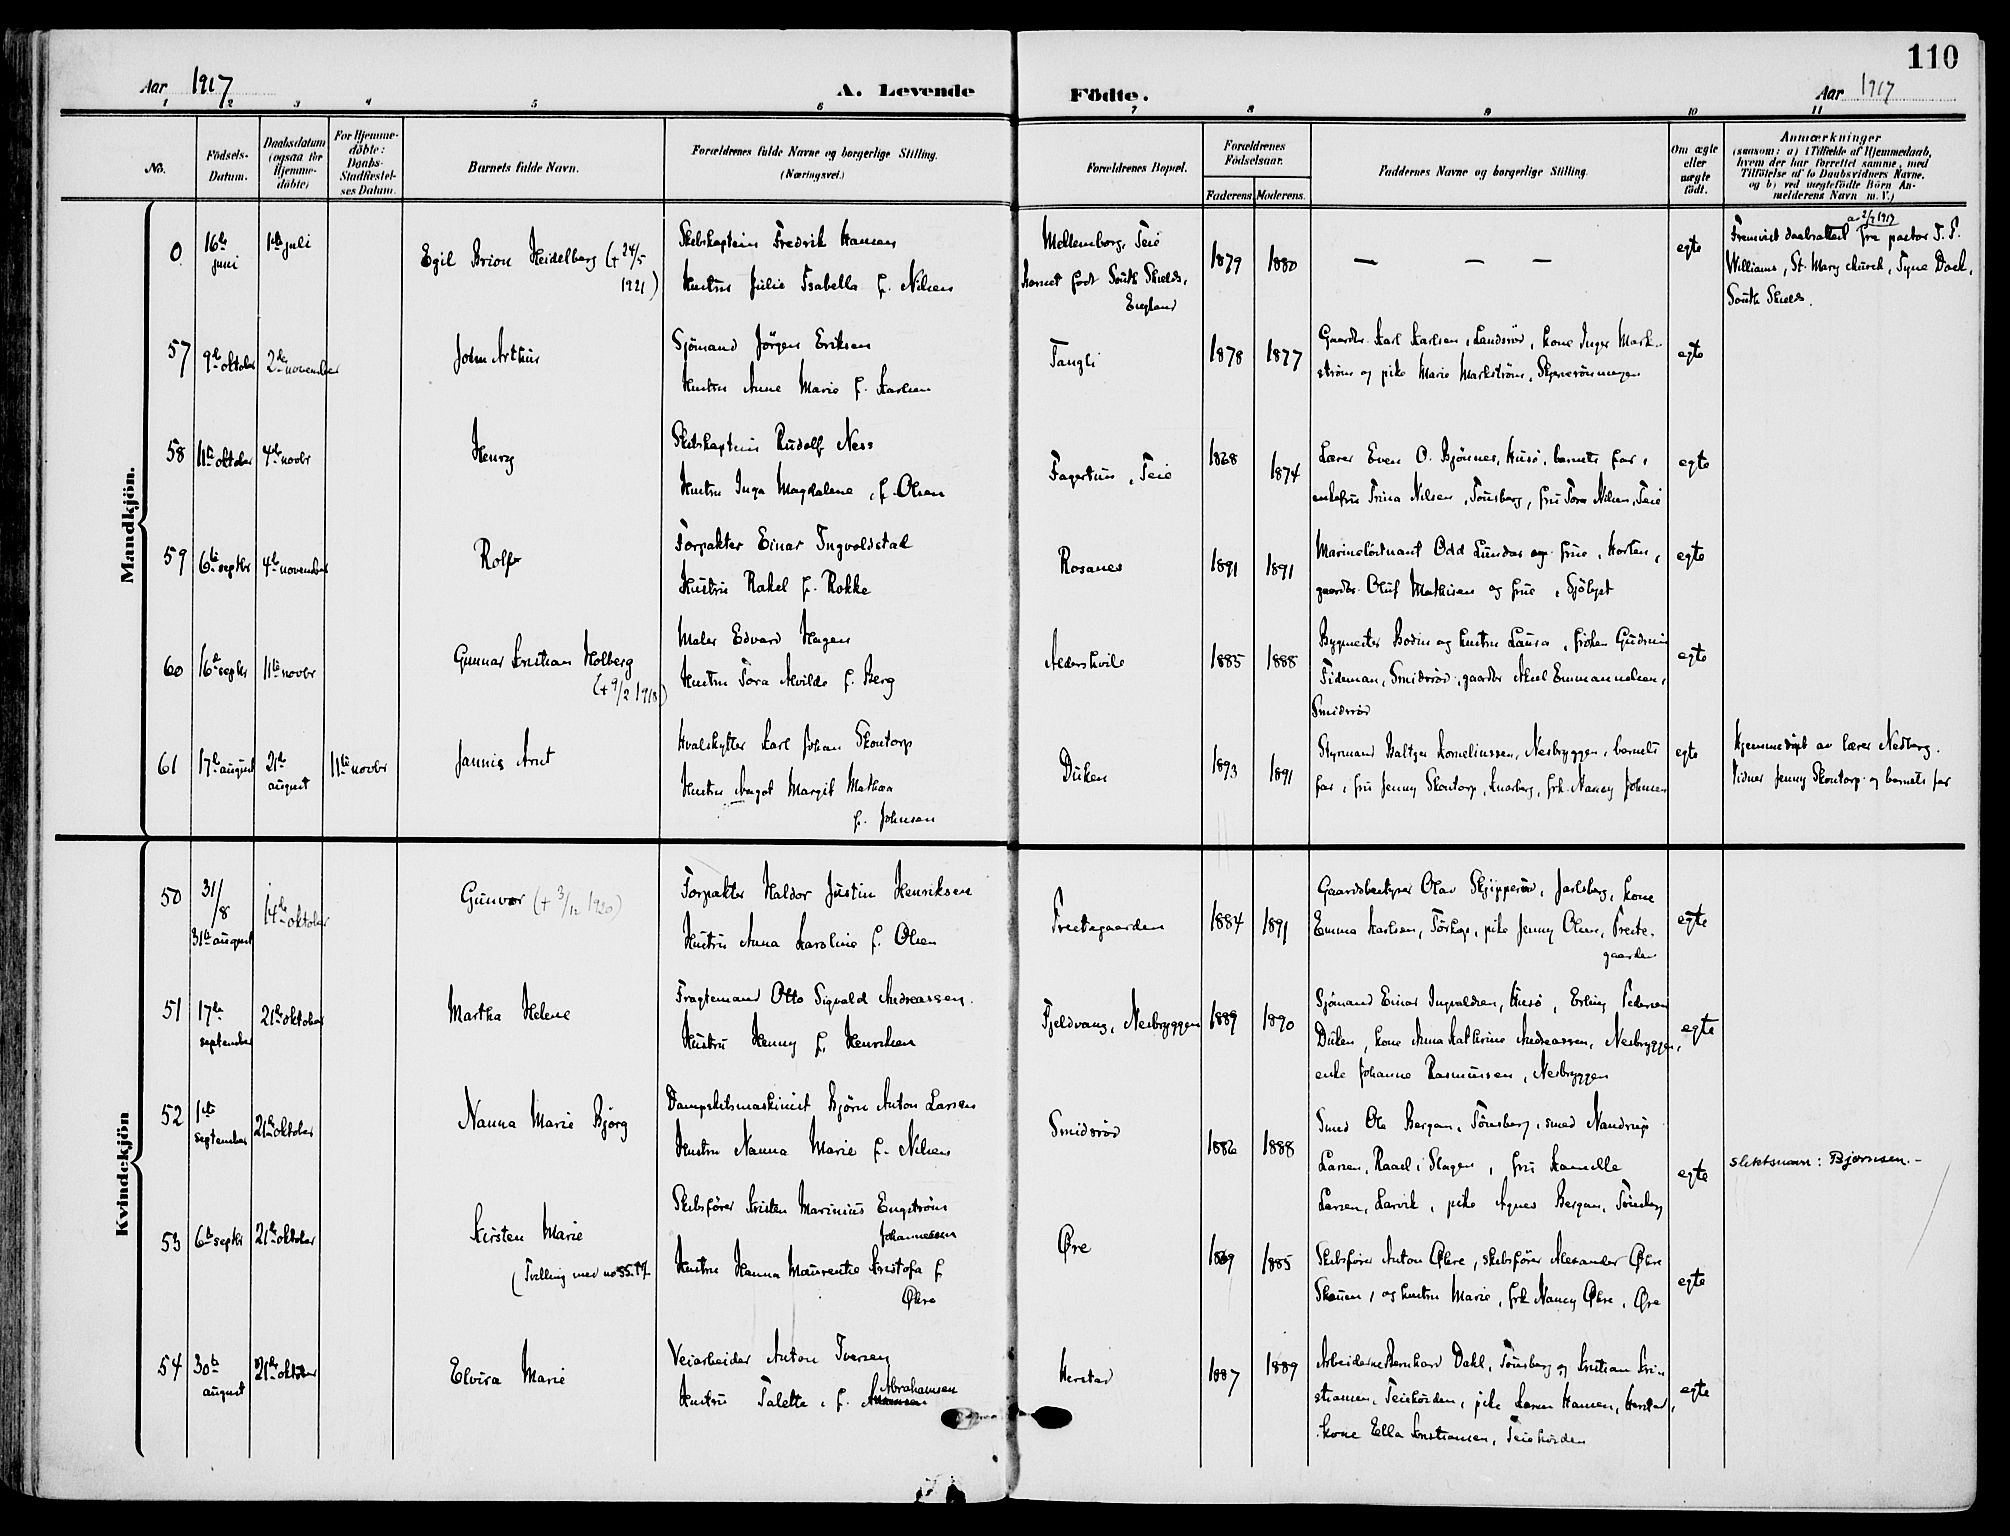 110
Aar 1917
A. Levende
Födte.
Aar 1917
1 2 3 4 5 6 7 8 9 10 11
No.
Födsels-
Datum.
Daabsdatum
(ogsaa for
Hjemme-
döbte)
For Hjemme-
döbte:
Daabs-
Stadfæstel-
ses Datum.
Barnets fulde Navn.
Forældrenes fulde Navne og borgerlige Stilling.
(Næringsvei.)
Forældrenes Bopæl.
Forældrenes
Födselsaar.
Faderens. Moderens.
Faddernes Navne og borgerlige Stilling.
Om ægte
eller
uægte
födt.
Anmærkninger
(saasom: a) i Tilfælde af Hjemmedaab,
hvem der har forrettet samme, med
Tilföielse af to Daabsvidners Navne.
og b) ved uægtefödte Börn An-
melderens Navn m. V.)
Mandkjön.
0
16de
juni
1ste juli
Egil Brion Heidelberg (+ 24/5
1921)
Skibskaptein Fredrik Hansen
Hustru Julie Isabella f. Nilsen
Mellemborg, Teie
Barnet født South Shields,
England
1879 1880
— — —
egte
a 2/7 1917
Fremvist daabsattest fra pastor T. S.
Williams, St. Mary church, Tyne Dock,
South Shields.
57
9de oktober
2den november
John Arthur
Sjömand Jörgen Eriksen
Hustru Anne Marie f. Karlsen
Tangli
1878 1877
Gaardbr. Karl Karlsen, Landsröd, kone Inger Mark-
ström og pike Marie Markström,
egte
58
11te oktober
4de novbr
Henry
Skibskaptein Rudolf Ness
Hustru Inga Magdalene, f. Olsen
Fagertun, Teie
1868 1874
Lærer Even O. Bjönnes, Husö, barnets far,
enkefru Trina Nilsen, Tönsberg, fru Tora Nilsen, Teie
egte
59
6te septbr
4de november
Rolf
Forpakter Einar Ingvoldstad
Hustru Rakel f. Rokke
Rosanes
1891 1891
Marinelöitnant Odd Lundas og frue, Horten,
gaardbr. Oluf Mathisen og frue, Sjölyst
egte
60
16de septbr
11te novbr
Gunnar Kristian Holberg
(+ 9/2 1918)
Maler Edvard Hagen
Hustru Tora Alvilde f. Berg
Aldershvile
1885 1888
Bygmester Bodin og hustru Laura, fröken Gudrun
Tideman, Smidsröd, gaardbr Aksel Emmanuelsen,
Smidsröd
egte
61
17de august
21de
august
11te novbr
Jannis Arnt
Hvalskytter Karl Johan Skontorp
Hustru Aagot Margit Mathea
f. Johnsen
Duken
1893 1891
Styrmand Baltzer Korneliussen, Nesbryggen, barnets
far, fru Jenny Skontorp, Knarberg, frk. Nancy Johnsen
egte
Hjemmedöpt av lærer Nedberg.
Vidner Jenny Skontorp og barnets far
Kvindekjön
50
31/8
31te august
14de oktober
Gunvor (+ 3/12 1920)
Forpakter Haldor Justin Henriksen
Hustru Anna Karoline f. Olsen
Prestegaarden
1884 1891
Gaardsbestyrer Olav Skjipperöd, Jarlsberg, kone
Emma Karlsen, pike Jenny Olsen, Preste-
gaarden
egte
51
17de
september
21de oktober
Martha Helene
Fragtemand Otto Sigvald Andreassen.
Hustru Henny f. Henrichsen
Fjeldvang, Nesbryggen
1889 1890
Sjömand Einar Ingvaldsen, Husö, Erling Pedersen
Duken, kone Anna Kathrine Andreassen, Nesbryggen,
enke Johanne Rasmussen, Nesbryggen
egte
52
1ste
september
21de oktober
Nanna Marie Bjørg
Dampskibsmaskinist Bjørn Anton Larsen
Hustru Nanna Marie f. Nilsen
Smidsröd
1886 1888
Smed Ole Bergan, Tönsberg, smed Nandrup
Larsen, Raael i Slagen, fru Kamille
Larsen, Larvik, pike Agnes Bergan, Tönsberg
egte
slektsnavn: Bjørnsen.-
53
6te septbr
21de oktober
Kirsten Marie
(Tvilling med no 55. 17
Skibsförer Kristen Marinius Engström
Johannessen
Hustru Hanna Maurentse Kristofa f
Øhre
Øre
1869 1885
Skibsförer Anton Øhre, skibsförer Alexander Øhre
Skauen, og hustru Marie, frk Nancy Øhre, Øre
egte
54
30te
august
21de oktober
Elvira Marie
Veiarbeider Anton Iversen
Hustru Talette, f. Abrahamsen
Herstad
1887 1889
Arbeiderne Bernhard Dahl, Tönsberg og Kristian Kri-
stiansen, Teiehöiden, pike Karen Hansen, Herstad,
kone Ella Kristiansen, Teiehöiden
egte